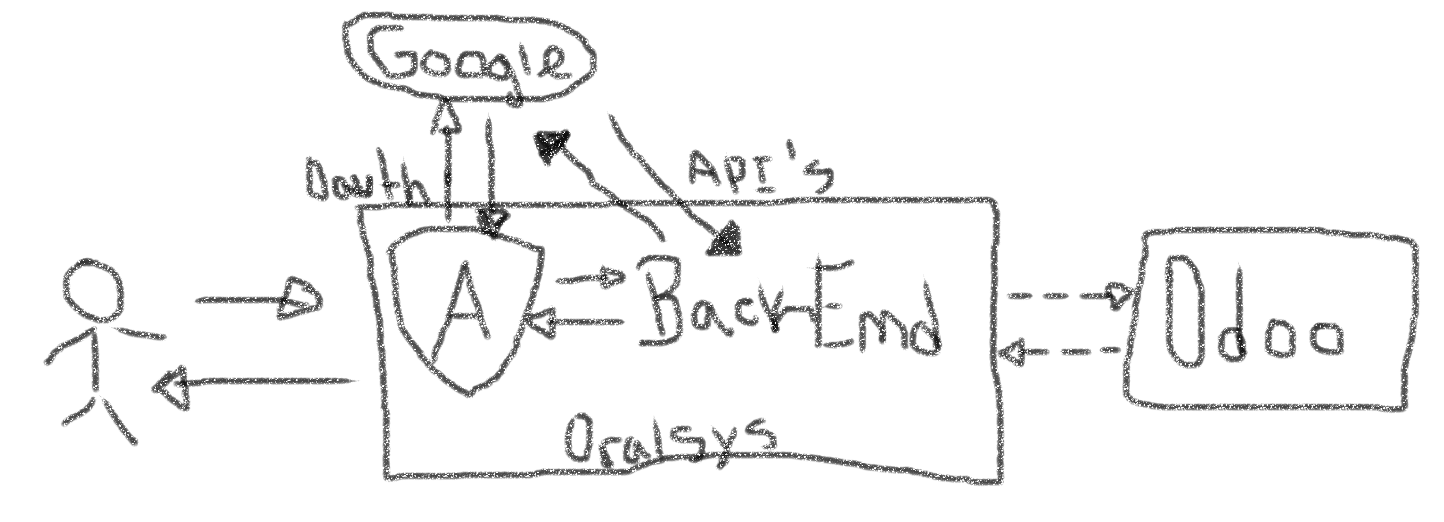 Google
Oauth
API's
A
Back-End
Odoo
Oralsys